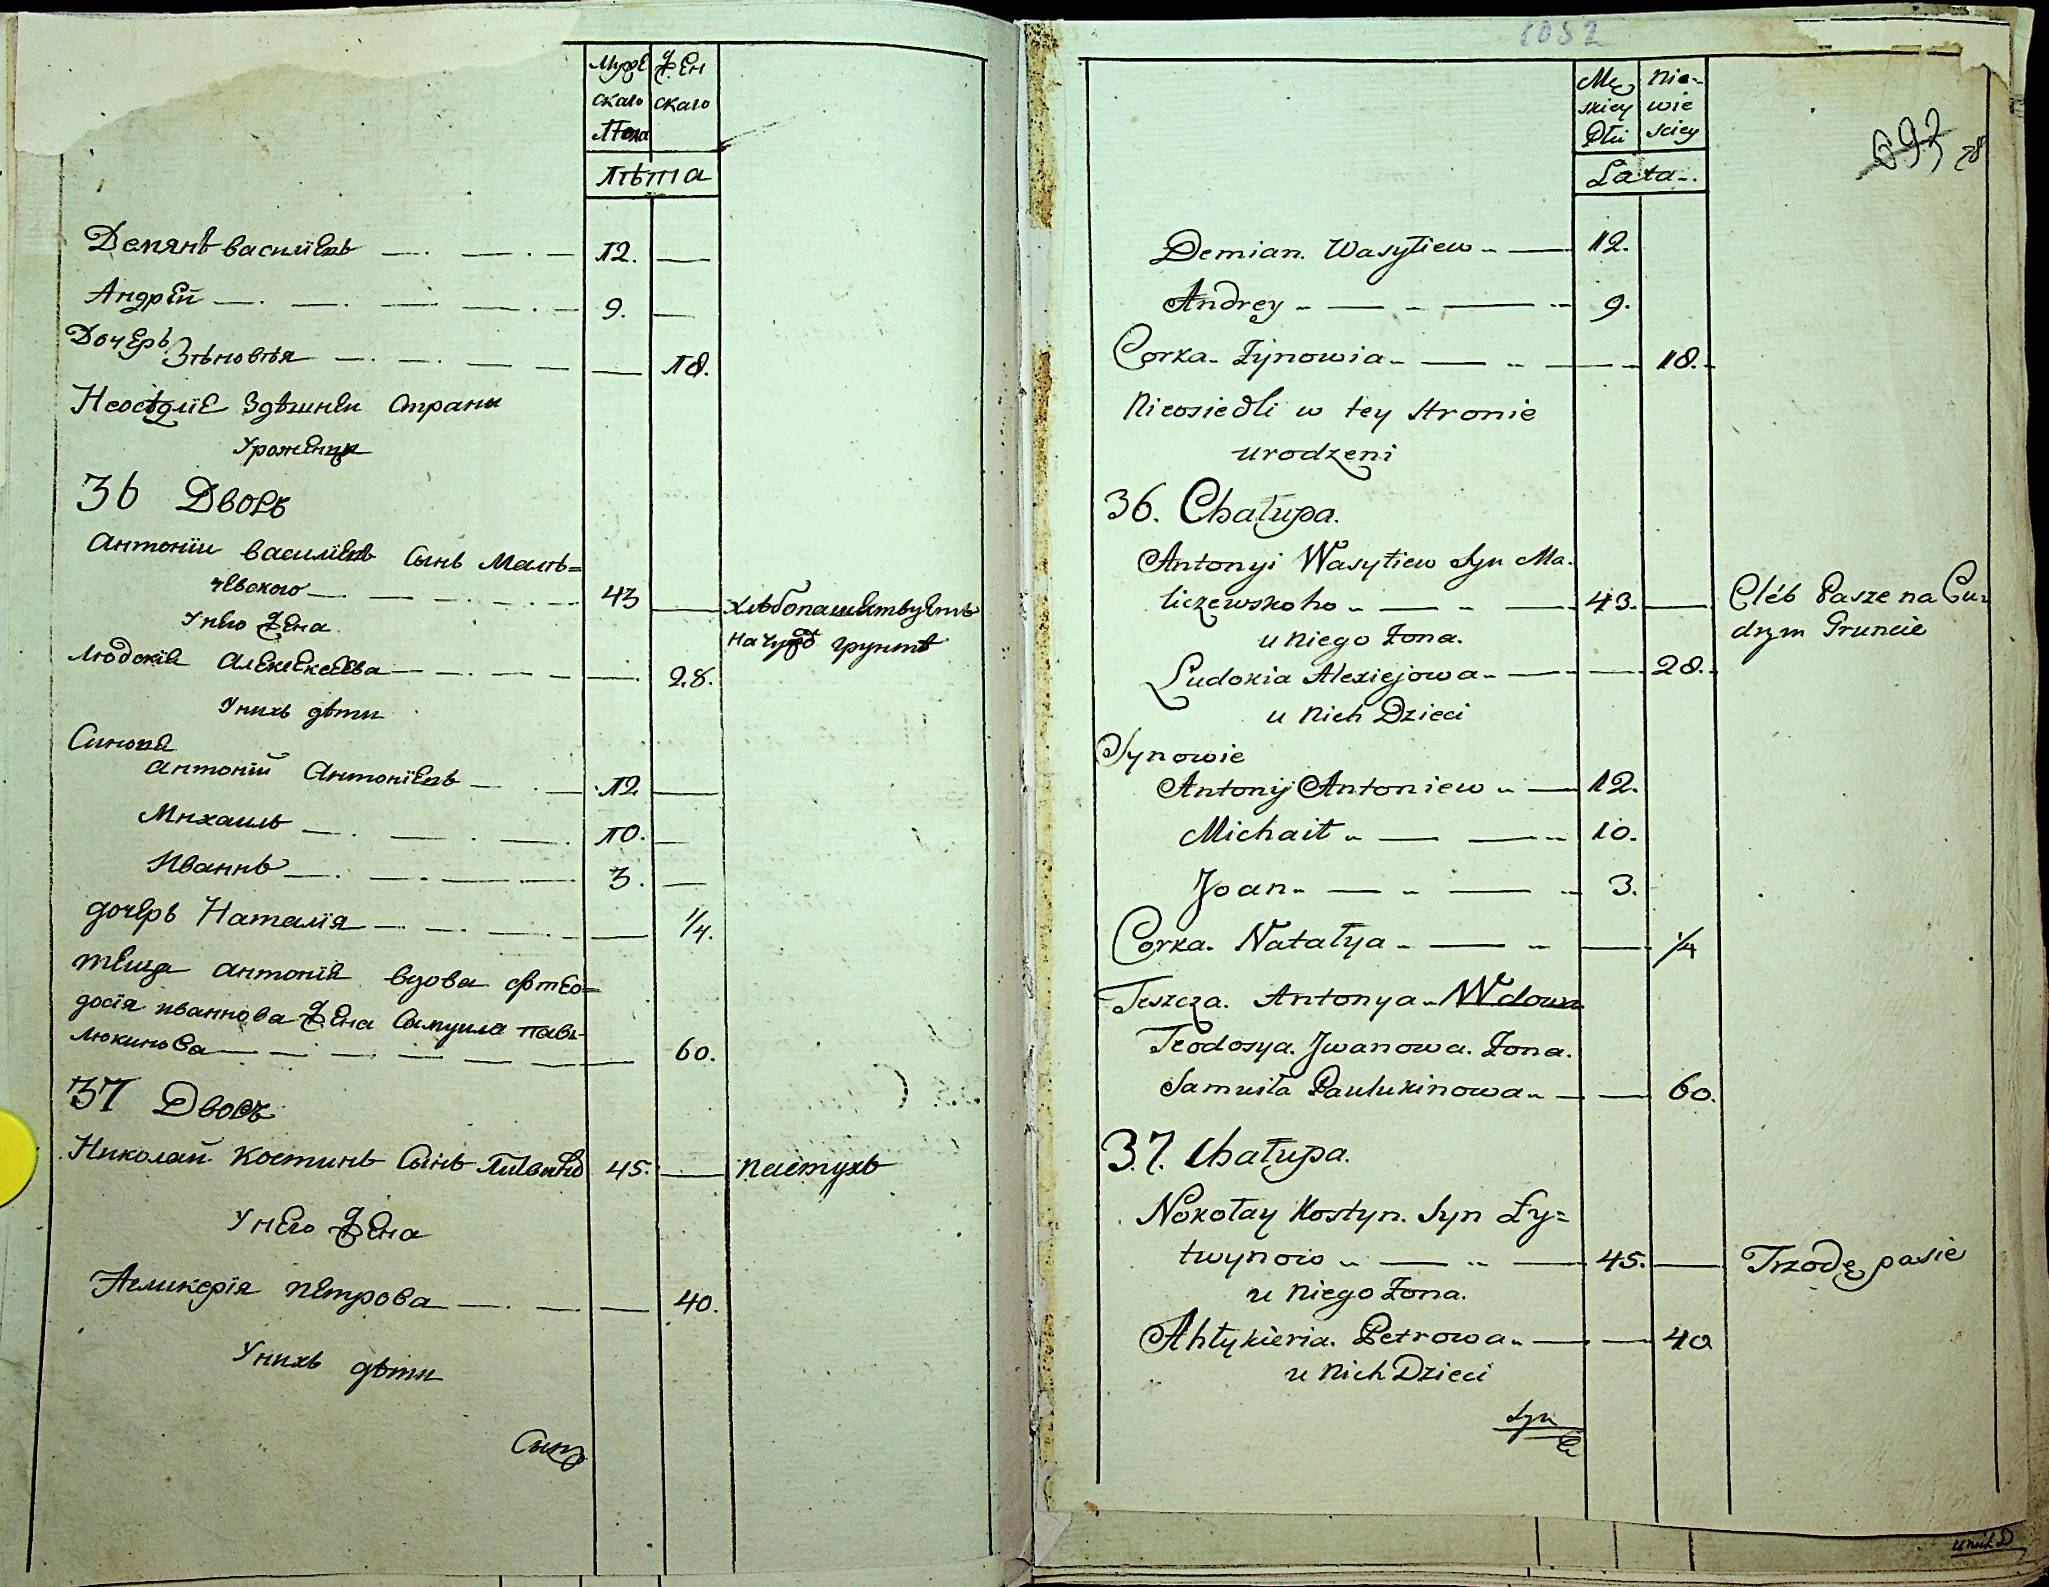 Муже Жен
скаго скаго
Пола
Лѣта
Демянъ василіевъ 12.
Андрѣй 9.
Дочерь
Зѣновѣя 18.
Неосѣдліе Здѣшнеи Страны
Уроженци
36 Дворъ
Антоніи василіевъ Сынъ Малѣ=
чевского 43 хлѣбопашествуетъ
У него Жена на чужо грунтѣ
Людокія Алексеева 28.
У нихъ дѣти
Синовя
Антоній Антоніевъ 12
Михаилъ 10.
Иваннъ 3.
дочерь Наталія 1/4.
теща антонія вдова Фтео=
досія иваннова Жена Самуила Павъ-
люкинова 60.
37 Дворъ
Николай Костинъ Сынъ 45. пастухъ
У него Жена
Агликерія петрова 40.
У нихъ дѣти
Сынъ
1052
Mę Nie-
skiey wie
Płci sciey
697 78
Lata.
Demian. Wasyliew 12.
Andrey 9.
Corka. Zynowia 18.
Nieosiedli w tey stronie
urodzeni
36. Chałupa.
Antonyi Wasyliew Syn Ma-
liczewskoho 43. Cléb Pasze na Cu-
u niego Zona. dzym Gruncie
Ludokia Alexiejowa 28.
u Nich Dzieci
Synowie
Antonÿ Antoniew 12.
Michaił 10.
Joan 3.
Corka. Natałya 1/4
Teszcza. Antonya Wdowa
Teodosya. Jwanowa. Zona.
Samuiła Paulukinowa 60.
37. Chałupa.
Nokołay Kostyn. Syn Ły=
twynow 45. Trzodę pasie
u Niego Zona.
Ahłykieria. Petrowa 40
u Nich Dzieci
Syn
u nich D